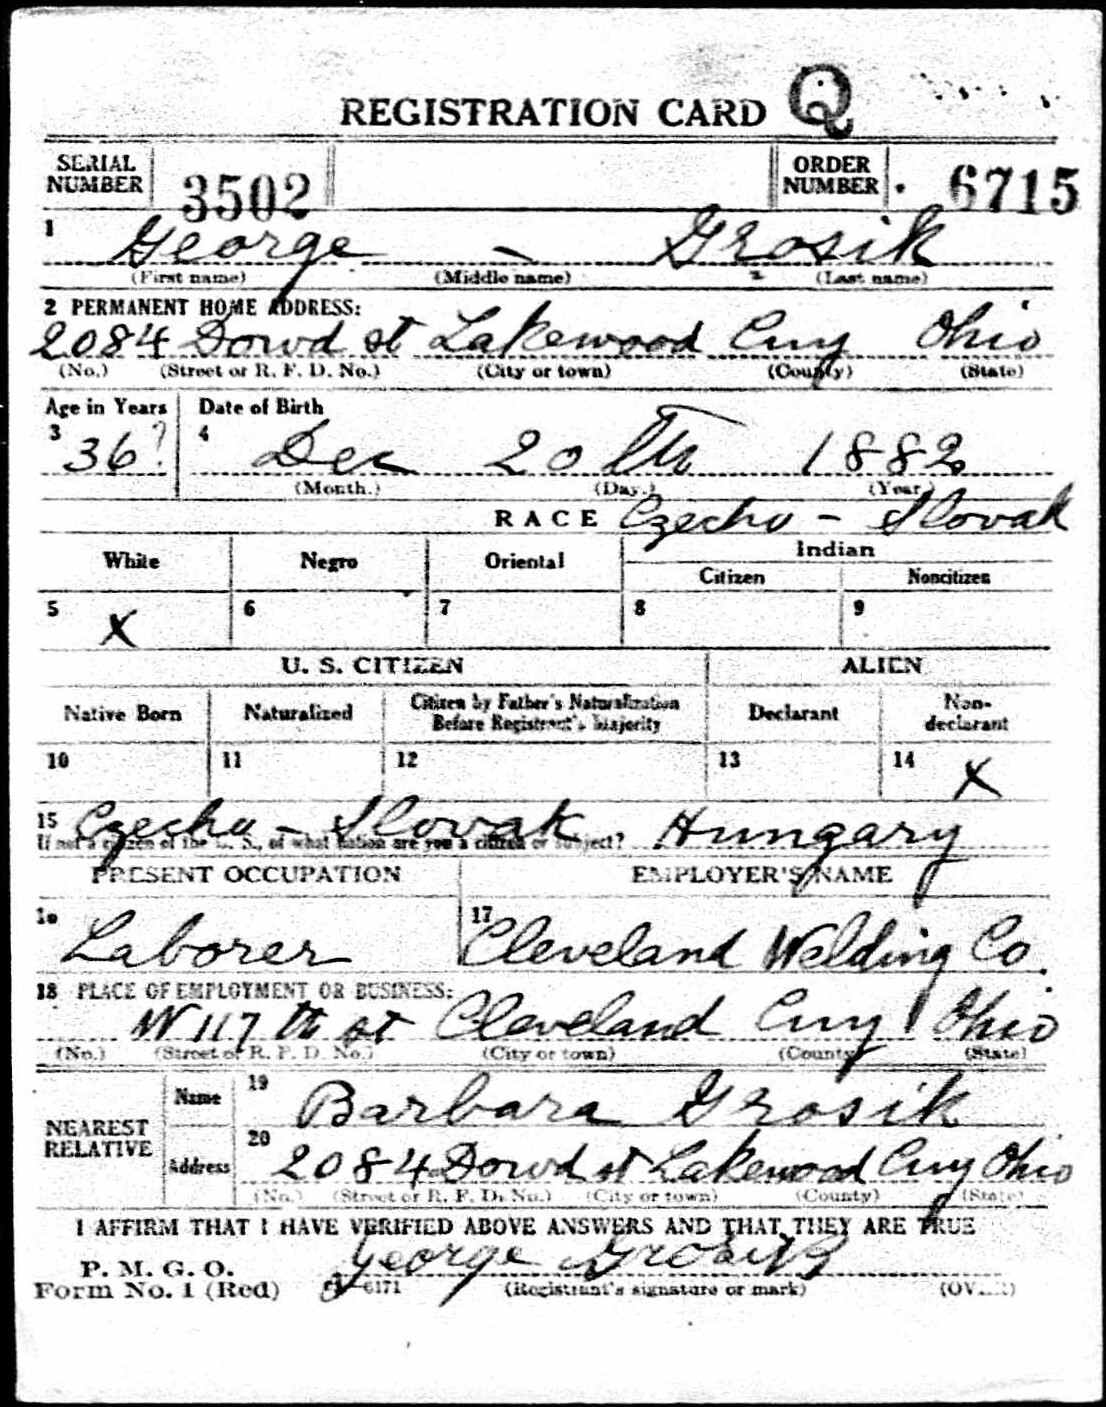 REGISTRATION CARD Q
SERIAL NUMBER 3502 ORDER NUMBER 6715
1 George - Grosik
(First name) (Middle name) (Last name)
2 PERMANENT HOME ADDRESS:
2084 Dowd st Lakewood Cuy Ohio
(No.) (Street or R. F. D. No.) (City or town) (County) (State)
Age in Years Date of Birth
3 36? 4 Dec 20th 1882
(Month.) (Day.) (Year.)
RACE Czecho - Slovak
White Negro Oriental Indian
Citizen Noncitizen
5 X 6 7 8 9
U. S. CITIZEN ALIEN
Native Born Naturalized Citizen by Father's Naturalization Before Registrant's Majority Declarant Non-declarant
10 11 12 13 14 X
15 Czecho - Slovak Hungary
If not a citizen of the U. S., of what nation are you a citizen or subject?
PRESENT OCCUPATION EMPLOYER'S NAME
16 Laborer 17 Cleveland Welding Co.
18 PLACE OF EMPLOYMENT OR BUSINESS:
W 117th st Cleveland Cuy Ohio
(No.) (Street or R. F. D. No.) (City or town) (County) (State)
NEAREST RELATIVE Name 19 Barbara Grosik
Address 20 2084 Dowd st Lakewood Cuy Ohio
(No.) (Street or R. F. D. No.) (City or town) (County) (State)
I AFFIRM THAT I HAVE VERIFIED ABOVE ANSWERS AND THAT THEY ARE TRUE
P. M. G. O. George Grosik
Form No. 1 (Red) 6171 (Registrant's signature or mark) (OVER)